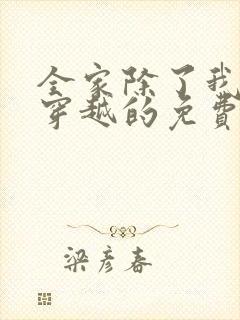 全家除了我
穿越的免费
梁彦春